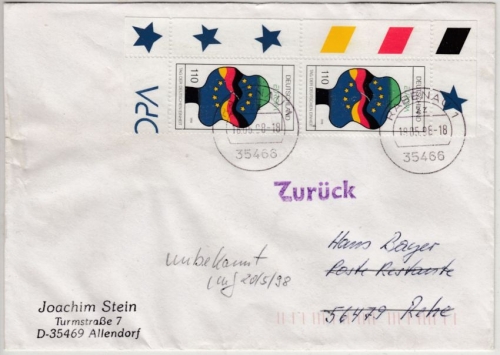 DPA
110
DEUTSCHLAND
110
DEUTSCHLAND
RABENAU 1
18.05.98-18
35466
18.05.98-18
35466
Zurück
Hans Bayer
Poste Restante
56479 Rehe
unbekannt
20/5/98
Joachim Stein
Turmstraße 7
D-35469 Allendorf